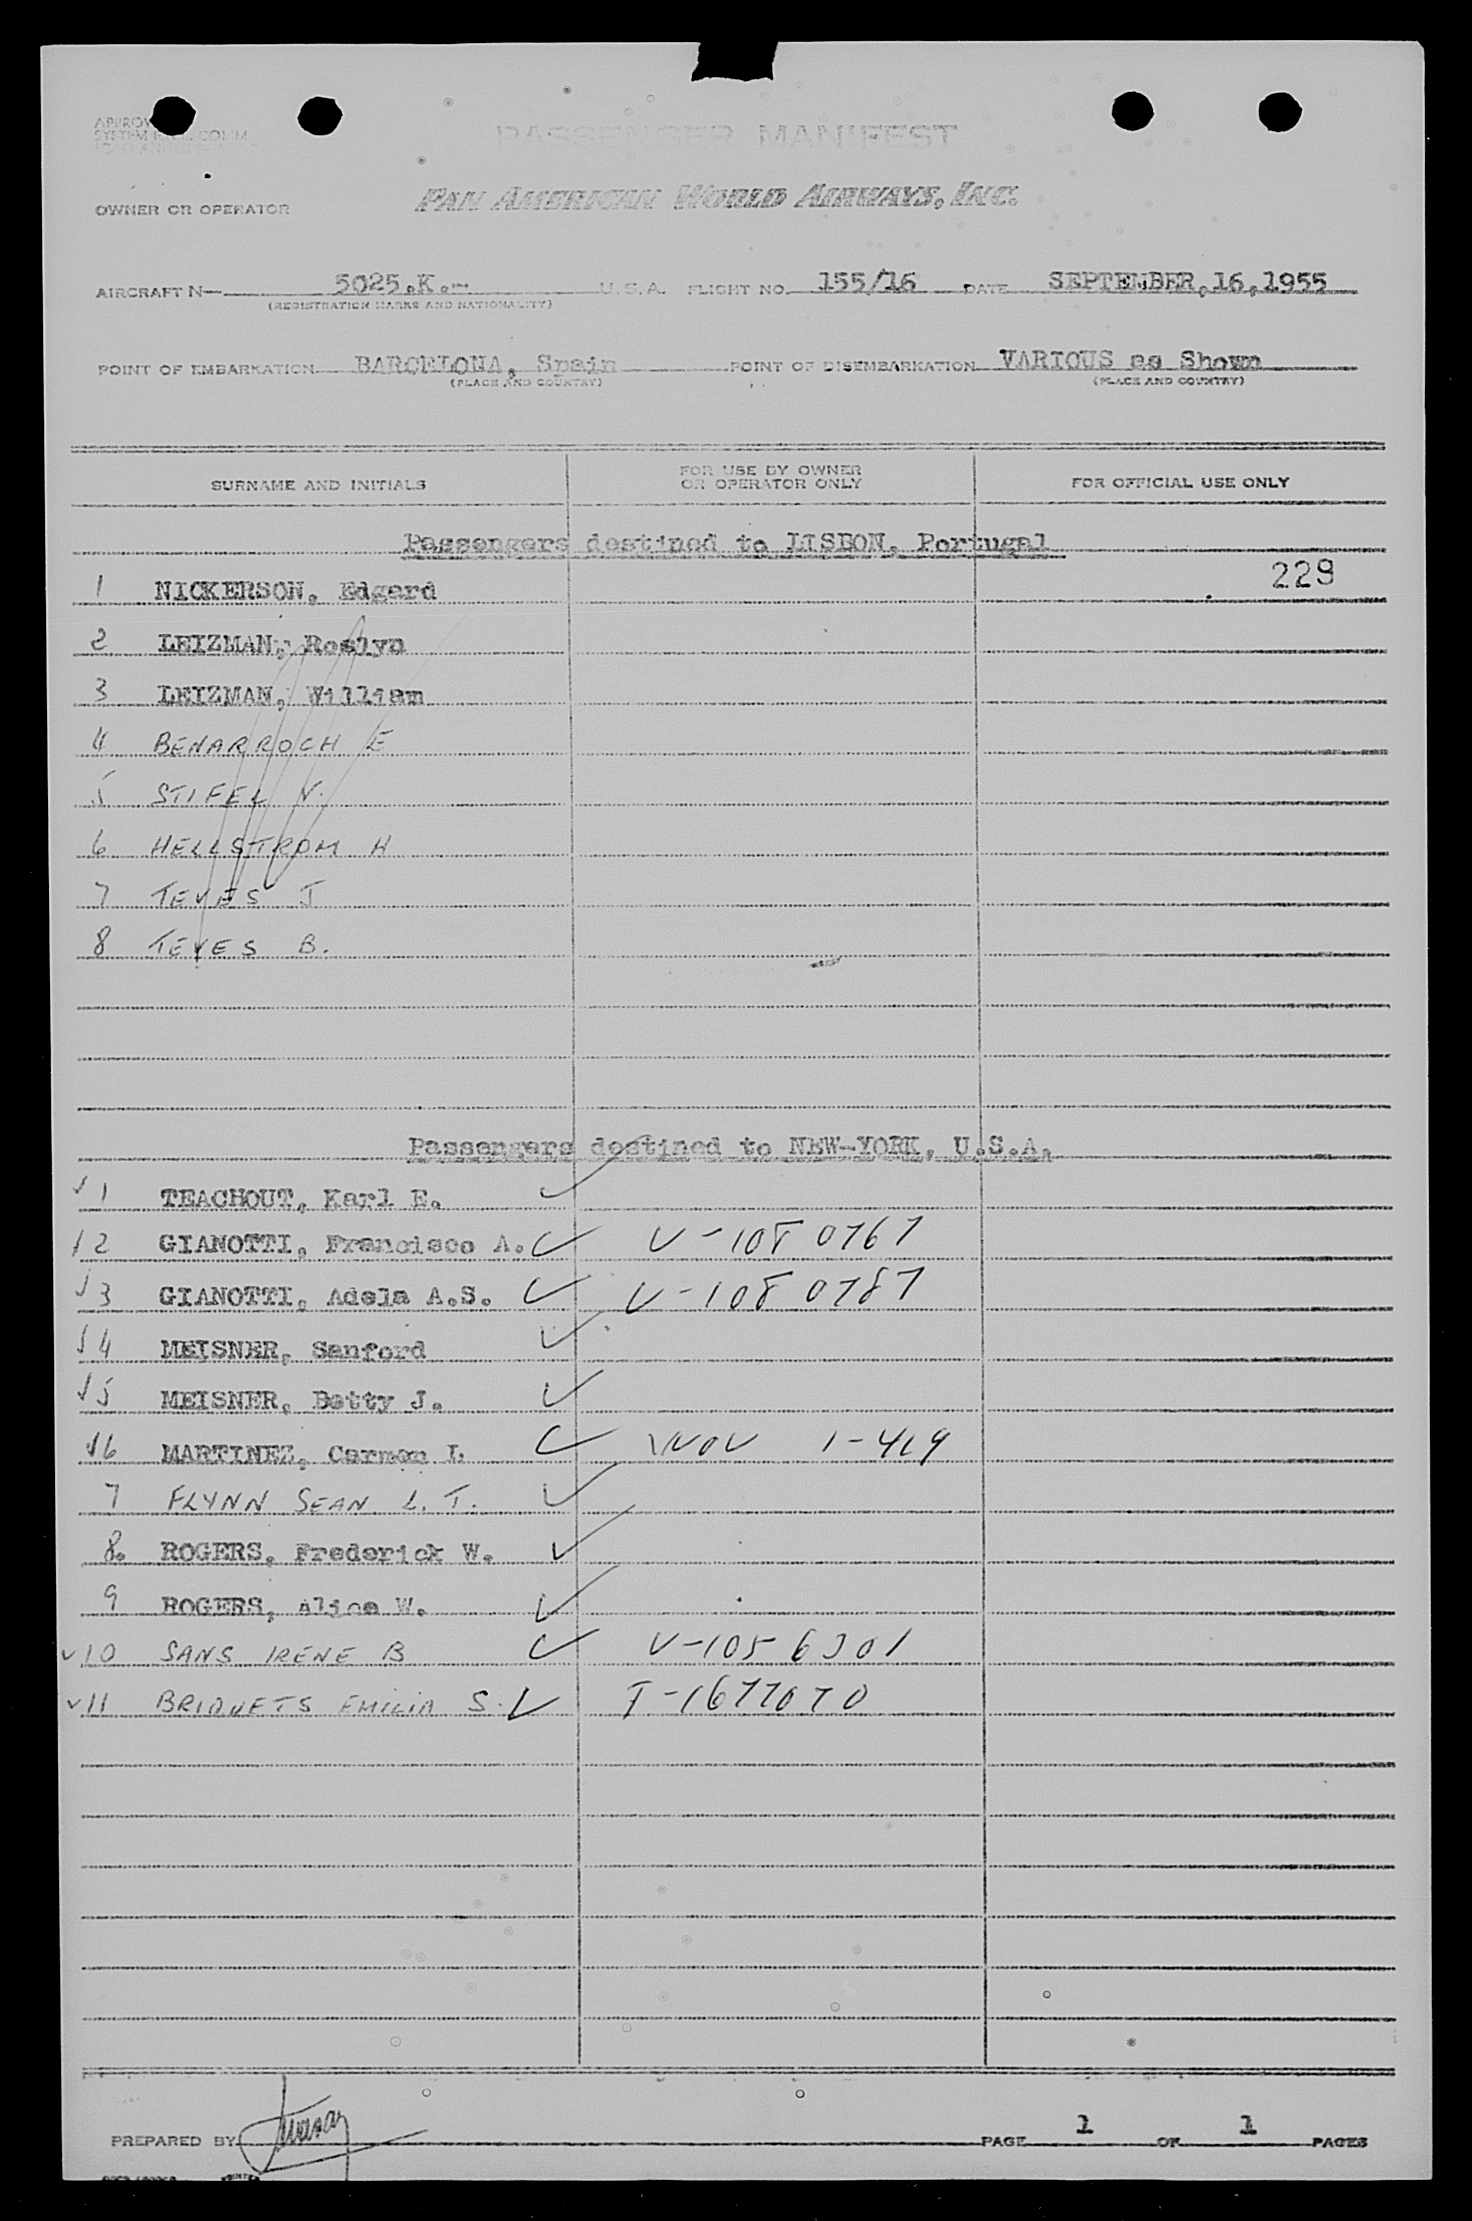 PASSENGER MANIFEST
OWNER OR OPERATOR PAN AMERICAN WORLD AIRWAYS, INC.
AIRCRAFT N— 5025.K.- U.S.A. FLIGHT NO. 155/16 DATE SEPTEMBER,16,1955
(REGISTRATION MARKS AND NATIONALITY)
POINT OF EMBARKATION BARCELONA, Spain POINT OF DISEMBARKATION VARIOUS as Shown
(PLACE AND COUNTRY) (PLACE AND COUNTRY)
SURNAME AND INITIALS FOR USE BY OWNER OR OPERATOR ONLY FOR OFFICIAL USE ONLY
Passengers destined to LISBON, Portugal
1 NICKERSON, Edgard 229
2 LEIZMAN, Roslyn
3 LEIZMAN, William
4 BENARROCH E
5 STIFEL N.
6 HELLSTROM H
7 TEVES J
8 TEVES B.
Passengers destined to NEW-YORK, U.S.A.
1 TEACHOUT, Karl E.
2 GIANOTTI, Francisco A. V-1080767
3 GIANOTTI, Adela A.S. V-1080787
4 MEISNER, Sanford
5 MEISNER, Betty J.
6 MARTINEZ, Carmen I.
7 FLYNN SEAN L. T.
8. ROGERS, Frederick W.
9 ROGERS, Alice W.
10 SANS IRENE B
11 EMILIA S. T-1677070
PREPARED BY PAGE 1 OF 1 PAGES